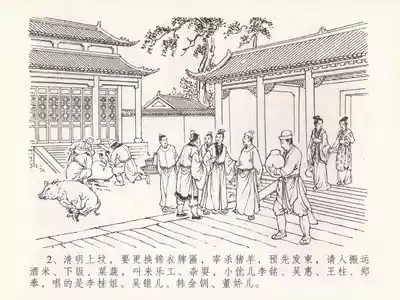 2、清明上坟，要更换锦衣牌匾，宰杀猪羊，预先发柬，请人搬运
酒米、下饭，菜蔬，叫来乐工、杂耍，小优儿李铭、吴惠、王柱、郑
奉，唱的是李桂姐、吴银儿、韩金钏、董娇儿。